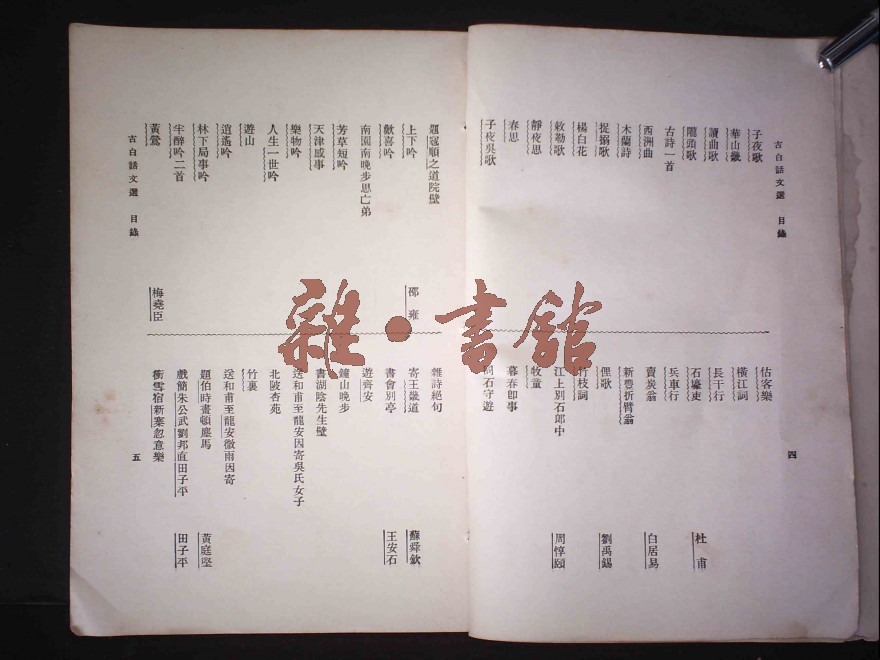 古白話文選 目錄
四
子夜歌
華山畿
讀曲歌
隴頭歌
古詩一首
西洲曲
木蘭詩
捉搦歌
楊白花
敕勒歌
靜夜思
春思
子夜吳歌
估客樂
橫江詞
長干行
石壕吏 杜甫
兵車行
賣炭翁 白居易
新豐折臂翁
俚歌 劉禹錫
竹枝詞
江上別石郎中 周惇頤
牧童
暮春即事
同石守遊
題寇順之道院壁
上下吟 邵雍
歡喜吟
南園南晚步思亡弟
芳草短吟
天津感事
樂物吟
人生一世吟
遊山
逍遙吟
林下局事吟
半醉吟二首
黃鶯 梅堯臣
雜詩絕句
寄王畿道 蘇舜欽
書會別亭 王安石
遊齊安
鐘山晚步
書湖陰先生壁
送和甫至龍安因寄吳氏女子
北陂杏苑
竹裏
送和甫至龍安微雨因寄
題伯時畫頓塵馬 黃庭堅
戲簡朱公武劉邦直田子平 田子平
衝雪宿新寨忽意樂
古白話文選 目錄
五
雜·書館